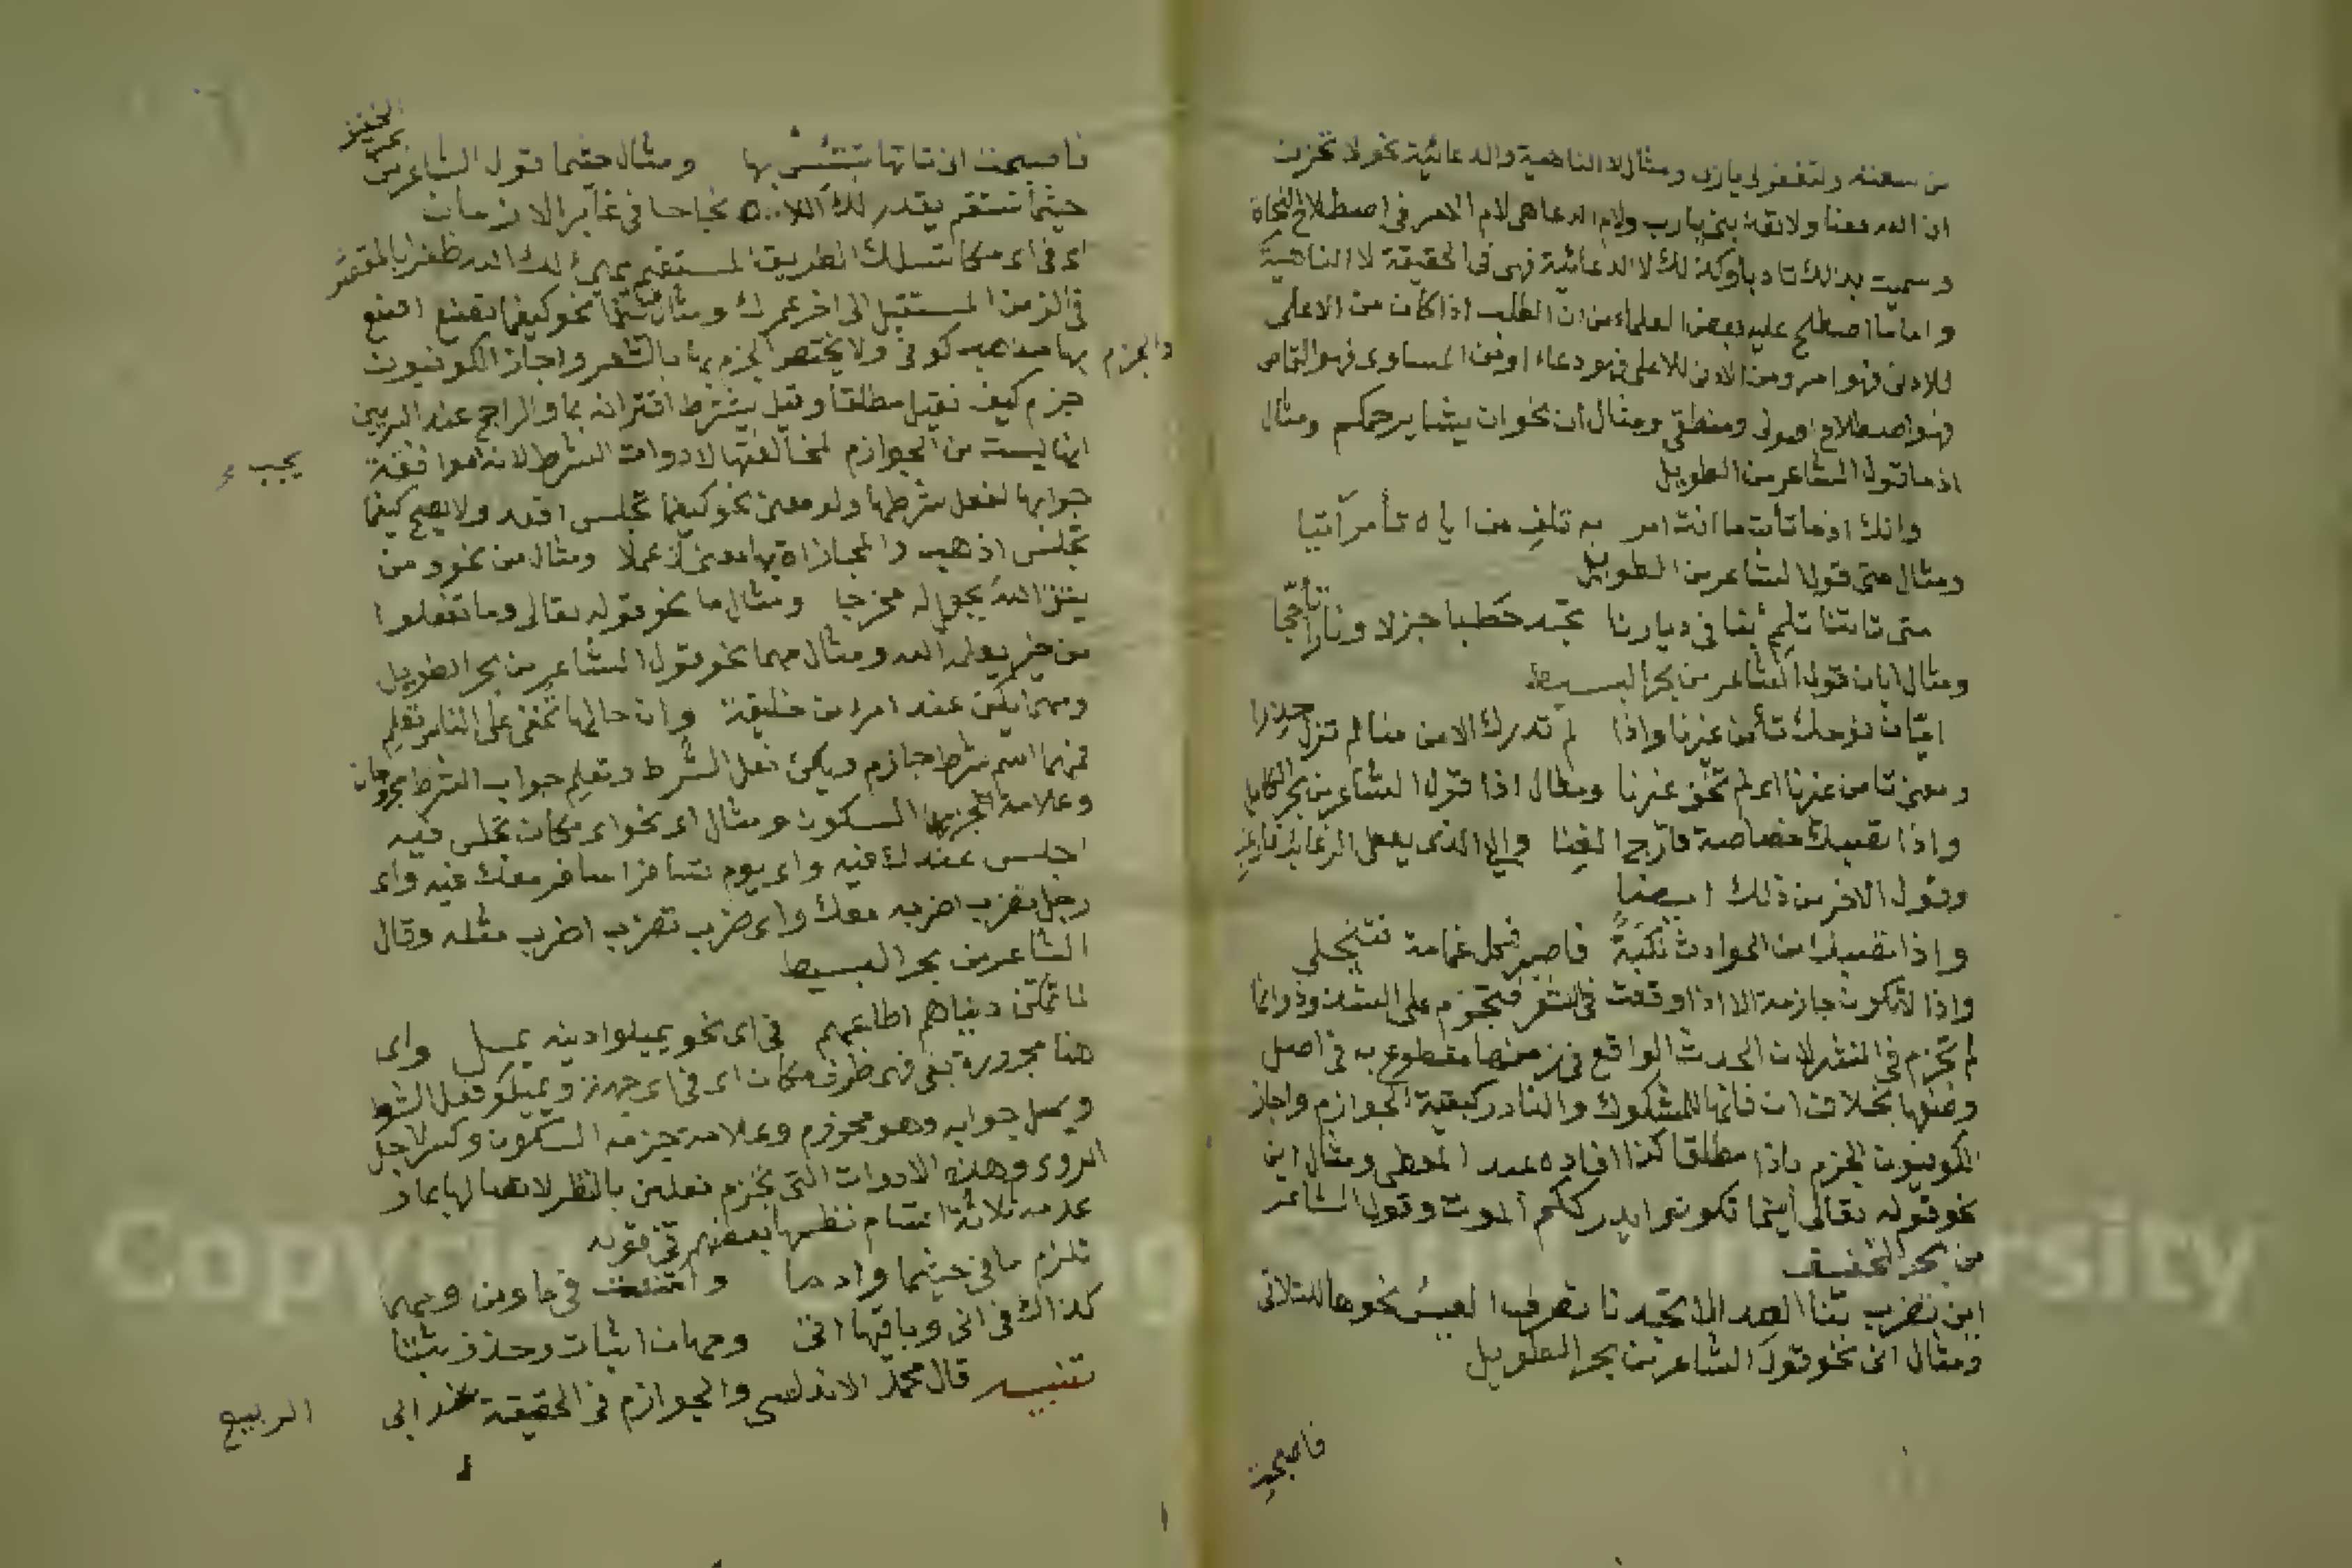 من سعته ولتغفر لي يارب ومثال لا الناهية والدعائية نحو لا تحزن
ان الله معنا ولا تقه بنى يارب ولام الدعا هى لام الامر فى اصطلاح النحاة
وسميت بذالك تادبا وكذلك لا الدعائية فهى فى الحقيقة لا الناهية
واما ما اصطلح عليه بعض العلماء من ان الطلب اذا كان من الاعلى
للادنى فهو امر ومن الادنى للاعلى فهو دعاء او من المساوى فهو التماس
فهو اصطلاح اصولى ومنطقى ومثال ان نحو ان يشا يرحمكم ومثال
اذ ما قول الشاعر من الطويل
وانك اذ ما تأت ما انت امر به تلف من اياه تأمر آتيا
ومثال متى قول الشاعر من الطويل
متى تاتنا تلمم بنا فى ديارنا تجد حطبا جزلا ونارا تأججا
ومثال ايان قول الشاعر من بحر البسيط
ايان نؤمنك تأمن غيرنا واذا لم تدرك الامن منا لم تزل حذرا
ومعنى تامن غيرنا اى لم تخف غيرنا ومثال اذا قول الشاعر من بحر الكامل
واذا تصبك خصاصة فارج الغنا والى الذى يعطى الرغائب فارغب
وقول الاخر من ذلك ايضا
واذا تصبك من الحوادث نكبة فاصبر فكل غمامة ستنجلي
واذا لا تكون جازمة الا اذا وقعت فى الشعر فتجزم على الشذوذ وانما
لم تجزم فى النثر لان الحدث الواقع فى زمنها مقطوع به فى اصل
وضعها بخلاف ان فانها للمشكوك والنادر كبقية الجوازم واجاز
الكوفيون الجزم باذا مطلقا كذا افاده عبد المعطى ومثال اين
نحو قوله تعالى اينما تكونوا يدرككم الموت وقول الشاعر
من بحر الخفيف
اين تضرب بنا العداة تجدنا نصرف العيس نحوها للتلاقى
ومثال انى نحو قول الشاعر من بحر الطويل
فاصبحت
فأصبحت انى تاتها تبتئس بها ومثال حيثما قول الشاعر من بحر الخفيف
حيثما تستقم يقدر لك اللاه نجاحا فى غابر الازمان
اى فى اى مكان تسلك الطريق المستقيم يهيئ لك الله ظفرا بالمقصد
فى الزمن المستقبل الى اخر عمرك ومثال كيفما نحو كيفما تصنع اصنع
والجزم بها مذهب كوفى ولا يختص الجزم بها بالشعر واجاز الكوفيون
جزم كيف فقيل مطلقا وقيل بشرط اقترانه بما والراجح عند البصريين
انها ليست من الجوازم لمخالفتها لادوات الشرط لانه يجب موافقة
جوابها لفعل شرطها ولو معنى نحو كيفما تجلس اقعد ولا يصح كيفما
تجلس اذهب والمجازاة بها معنى لا عملا ومثال من نحو ومن
يتق الله يجعل له مخرجا ومثال ما نحو قوله تعالى وما تفعلوا
من خير يعلمه الله ومثال مهما نحو قول الشاعر من بحر الطويل
ومهما يكن عند امرء من خليقة وان خالها تخفى على الناس تعلم
فمهما اسم شرط جازم ويكن فعل الشرط وتعلم جواب الشرط مجزومان
وعلامة جزمهما السكون ومثال اى نحو اى مكان تجلس فيه
اجلس عندك فيه واى يوم تسافر اسافر معك فيه واى
رجل تضرب اضربه معك واى ضرب تضرب اضرب مثله وقال
الشاعر من بحر البسيط
لما تمكن دنياهم اطاعهم فى اى نحو يميلوا دينه يمل واى
هنا مجرورة بفى فهى ظرف مكان اى فى اى جهة ويميلو فعل الشرط
ويمل جوابه وهو مجزوم وعلامة جزمه السكون وكسر لاجل
الروى وهذه الادوات التى تجزم فعلين بالنظر لاتصالها بما و
عدمه ثلاثة اقسام نظمها بعضهم فى قوله
تلزم ما فى حيثما واذما وامتنعت فى ما ومن ومهما
كذاك فى انى وباقيها اتى وجهان اثبات وحذف ثبتا
تنبيه قال محمد الاندلسى والجوازم فى الحقيقة عند ابى
الربيع